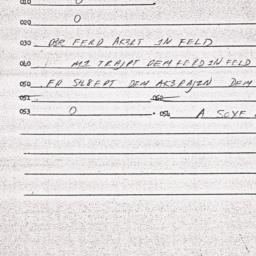 010 0
020 0
030 DER FERD ARBRT IN FELD
040 MI TRAJPT DEM FERD IN FELD
050 FD SHLEPT DEM AKERAJZN DEM
051 052
053 0 . 054 A SOYF